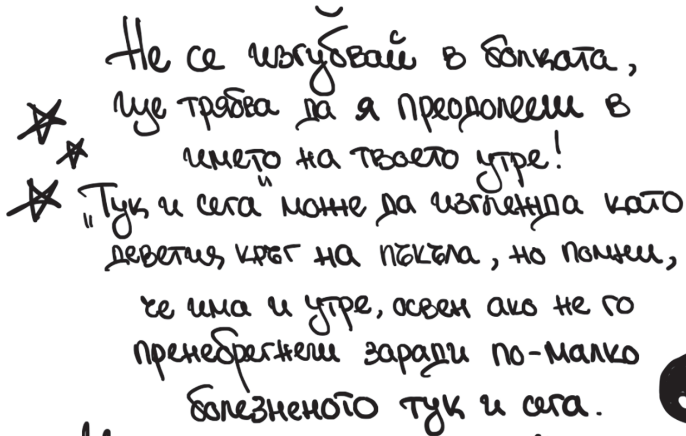 Не се изгубвай в болката,
ще трябва да я преодолееш в
името на твоето утре!
"Тук и сега" може да изглежда като
деветия кръг на пъкъла, но помни,
че има и утре, освен ако не го
пренебрегнеш заради по-малко
болезненото тук и сега.